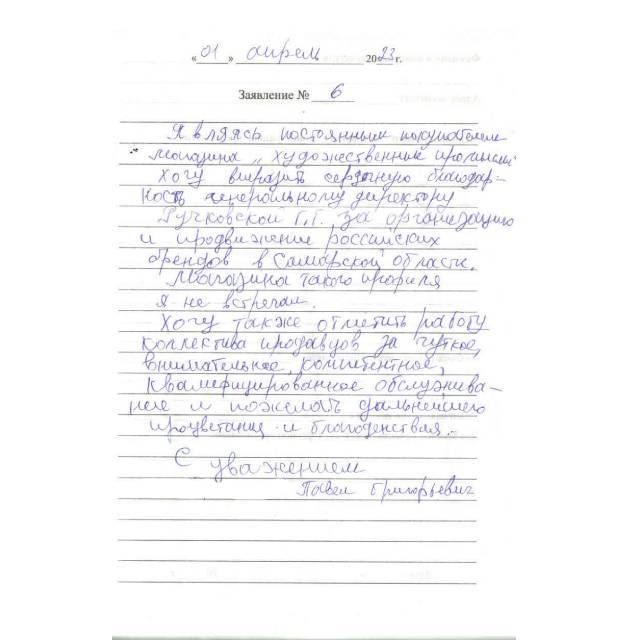 «01» апрель 2023 г.
Заявление № 6
Являясь постоянным покупателем
магазина „художественник
Хочу выразить сердечную благодар-
ность генеральному директору
Ручковской Г.Г. за организацию
и продвижение российских
брендов в Самарской области.
Магазина такого профиля
я не встречал.
Хочу также отметить работу
коллектива продавцов за чуткое,
внимательное, компетентное,
квалифицированное обслужива-
ние и пожелать дальнейшего
процветания и благоденствия.
С уважением
Павел Григорьевич